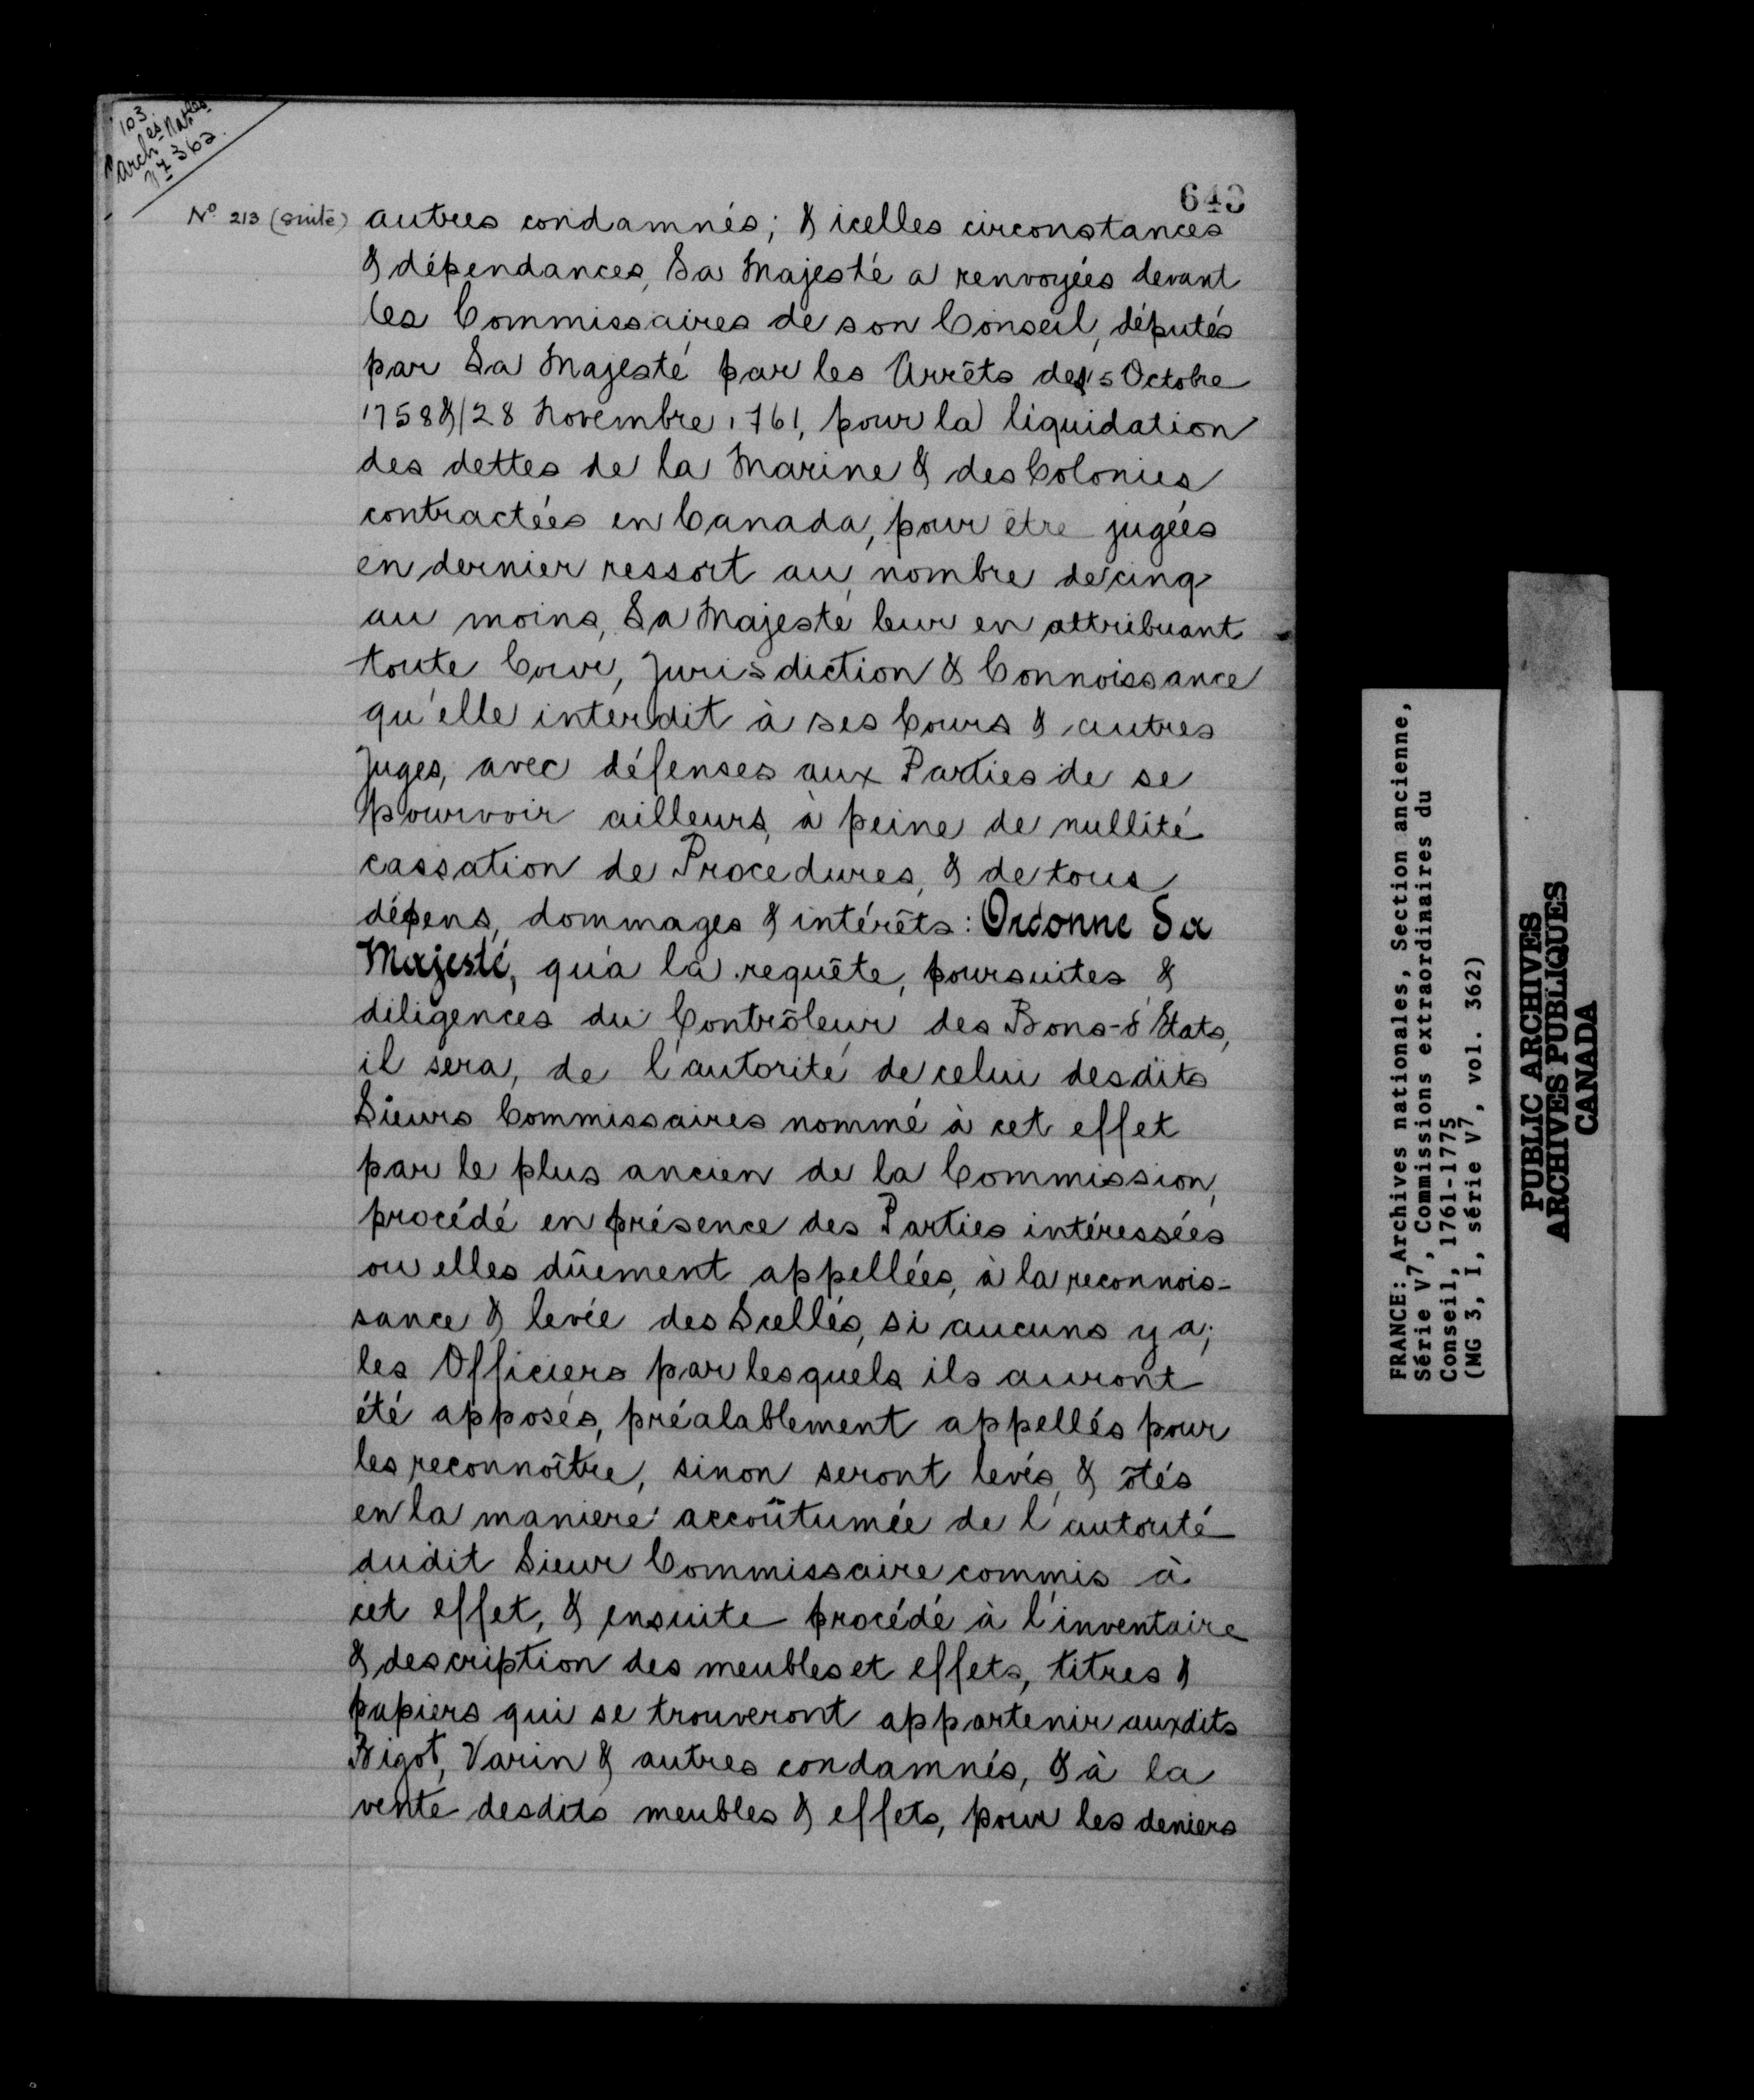 103.
Arch.es Nat.les
V7 362.
643
N° 213 (suite)
autres condamnés; & icelles circonstances
& dépendances, Sa Majesté a renvoyées devant
les Commissaires de son Conseil, députés
par Sa Majesté par les Arrêts des 15 Octobre
1758 & 28 Novembre 1761, pour la liquidation
des dettes de la Marine & des Colonies
contractées en Canada, pour être jugées
en dernier ressort au nombre de cinq
au moins, Sa Majesté leur en attribuant
toute Cour, Jurisdiction & Connoissance
qu'elle interdit à ses Cours & autres
Juges, avec défenses aux Parties de se
pourvoir ailleurs, à peine de nullité
cassation de Procedures, & de tous
dépens, dommages & intérêts: Ordonne Sa
Majesté, qu'à la requête, poursuites &
diligences du Contrôleur des Bons-d'Etats,
il sera, de l'autorité de celui desdits
Sieurs Commissaires nommé à cet effet
par le plus ancien de la Commission,
procédé en présence des Parties intéressées
ou elles dûement appellées, à la reconnois-
sance & levée des Scellés, si aucuns y a;
les Officiers par lesquels ils auront
été apposés, préalablement appellés pour
les reconnoître, sinon seront levés, & ôtés
en la maniere accoûtumée de l'autorité
dudit Sieur Commissaire commis à
cet effet, & ensuite procédé à l'inventaire
& description des meubles et effets, titres &
papiers qui se trouveront appartenir auxdits
Bigot, Varin & autres condamnés, & à la
vente desdits meubles & effets, pour les deniers
FRANCE: Archives nationales, Section ancienne,
Série V7, Commissions extraordinaires du
Conseil, 1761-1775
(MG 3, I, série V7, vol. 362)
PUBLIC ARCHIVES
ARCHIVES PUBLIQUES
CANADA